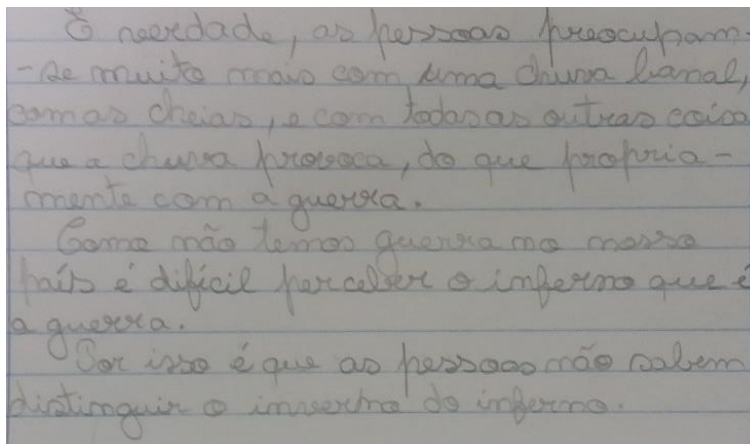 É verdade, as pessoas preocupam-
-se muito mais com uma chuva banal,
com as cheias, e com todas as outras coisa
que a chuva provoca, do que propria-
mente com a guerra.
Como não temos guerra no nosso
país é difícil perceber o inferno que é
a guerra.
Por isso é que as pessoas não sabem
distinguir o inverno do inferno.